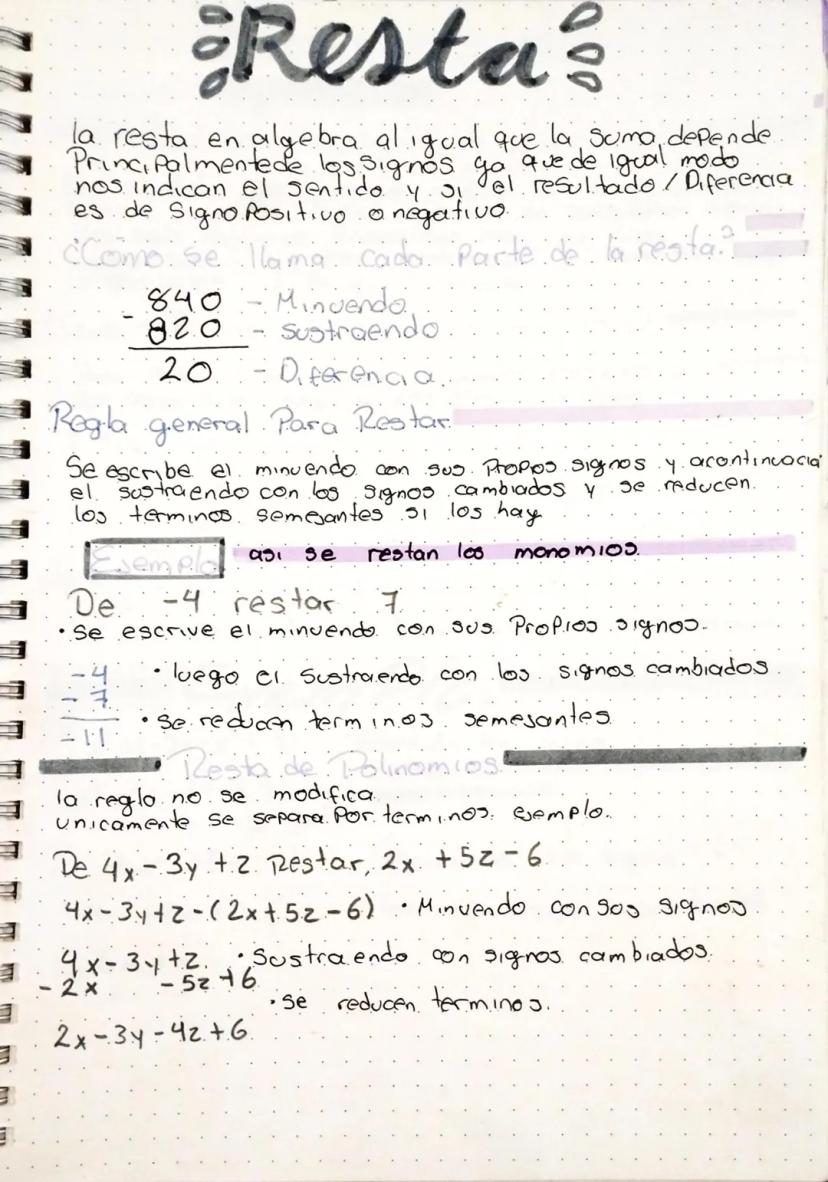 Resta
la resta en algebra al igual que la suma, depende
Principalmentede los signos ya que de igual modo
nos indican el sentido y si el resultado / Diferencia
es de Signo Positivo o negativo.
¿Como se llama cada parte de la resta?
- 840 - Minuendo
820 - sustraendo
20 - Diferencia.
Regla general Para Restar
Se escribe el minuendo con sus Propios signos y acontinuacia
el sustraendo con los signos cambiados y se reducen
los terminos semesantes si los hay
Ejemplo asi se restan los monomios.
De -4 restar 7
• se escrive el minuendo con sus Propios signos.
-4 • luego el Sustraendo con los signos cambiados
- 7
-11 • se reducen terminos semesantes
Resta de Polinomios
la regla no se modifica
unicamente se separa Por terminos. ejemplo.
De 4x - 3y + z Restar, 2x + 5z - 6
4x - 3y + z - (2x + 5z - 6) • Minuendo con sos signos
4x - 3y + z. • Sustraendo con signos cambiados.
- 2x - 5z + 6
• se reducen terminos.
2x - 3y - 4z + 6